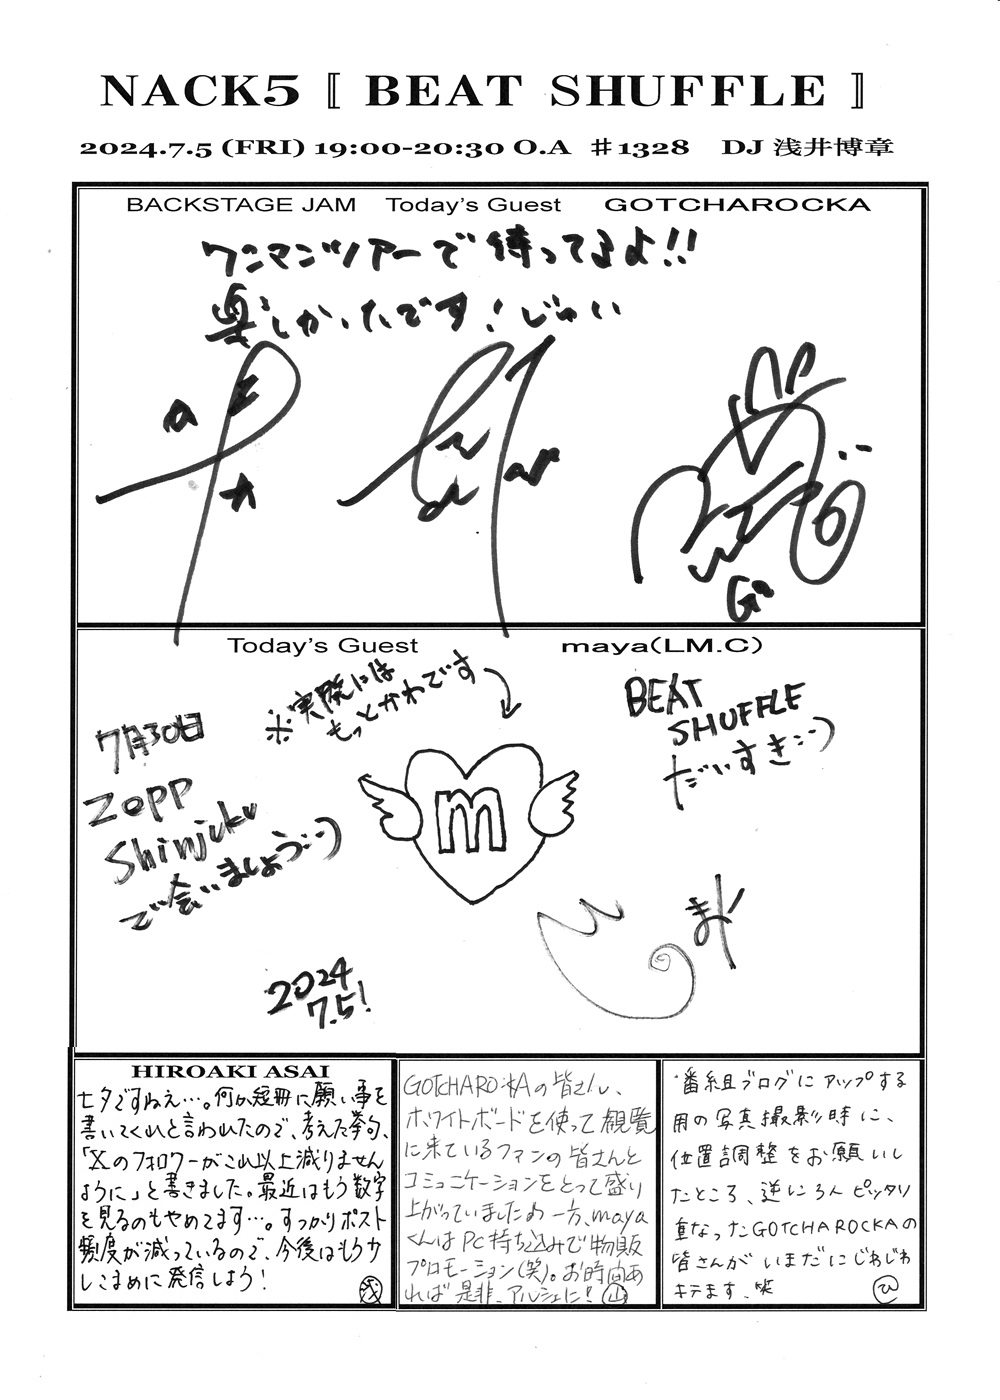 NACK5 〚 BEAT SHUFFLE 〛
2024.7.5 (FRI) 19:00-20:30 O.A ♯1328 DJ 浅井博章
BACKSTAGE JAM Today's Guest GOTCHAROCKA
ワンマンツアーで待ってるよ!!
楽しかったです！じゅい
Gt
Today's Guest maya(LM.C)
※実際には
もっとかわです
7月30日
Zepp
Shinjuku
で会いましょう:)
BEAT
SHUFFLE
だいすき:)
m
まや
2024
7.5!
HIROAKI ASAI
七夕ですねえ…。何か短冊に願い事を
書いてくれと言われたので、考えた挙句、
「Xのフォロワーがこれ以上減りません
ように」と書きました。最近はもう数字
を見るのもやめてます…。すっかりポスト
頻度が減っているので、今後はもう少
しこまめに発信しよう！ 浅
GOTCHAROCKAの皆さん、
ホワイトボードを使って観覧
に来ているファンの皆さんと
コミュニケーションをとって盛り
上がっていましたね 一方、maya
くんはPC持ち込みで物販
プロモーション(笑)。お時間あ
れば是非、アルシェに! 山
番組ブログにアップする
用の写真撮影時に、
位置調整をお願いし
たところ、逆に3人ピッタリ
重なったGOTCHAROCKAの
皆さんがいまだにじわじわ
キテます、笑 ひ